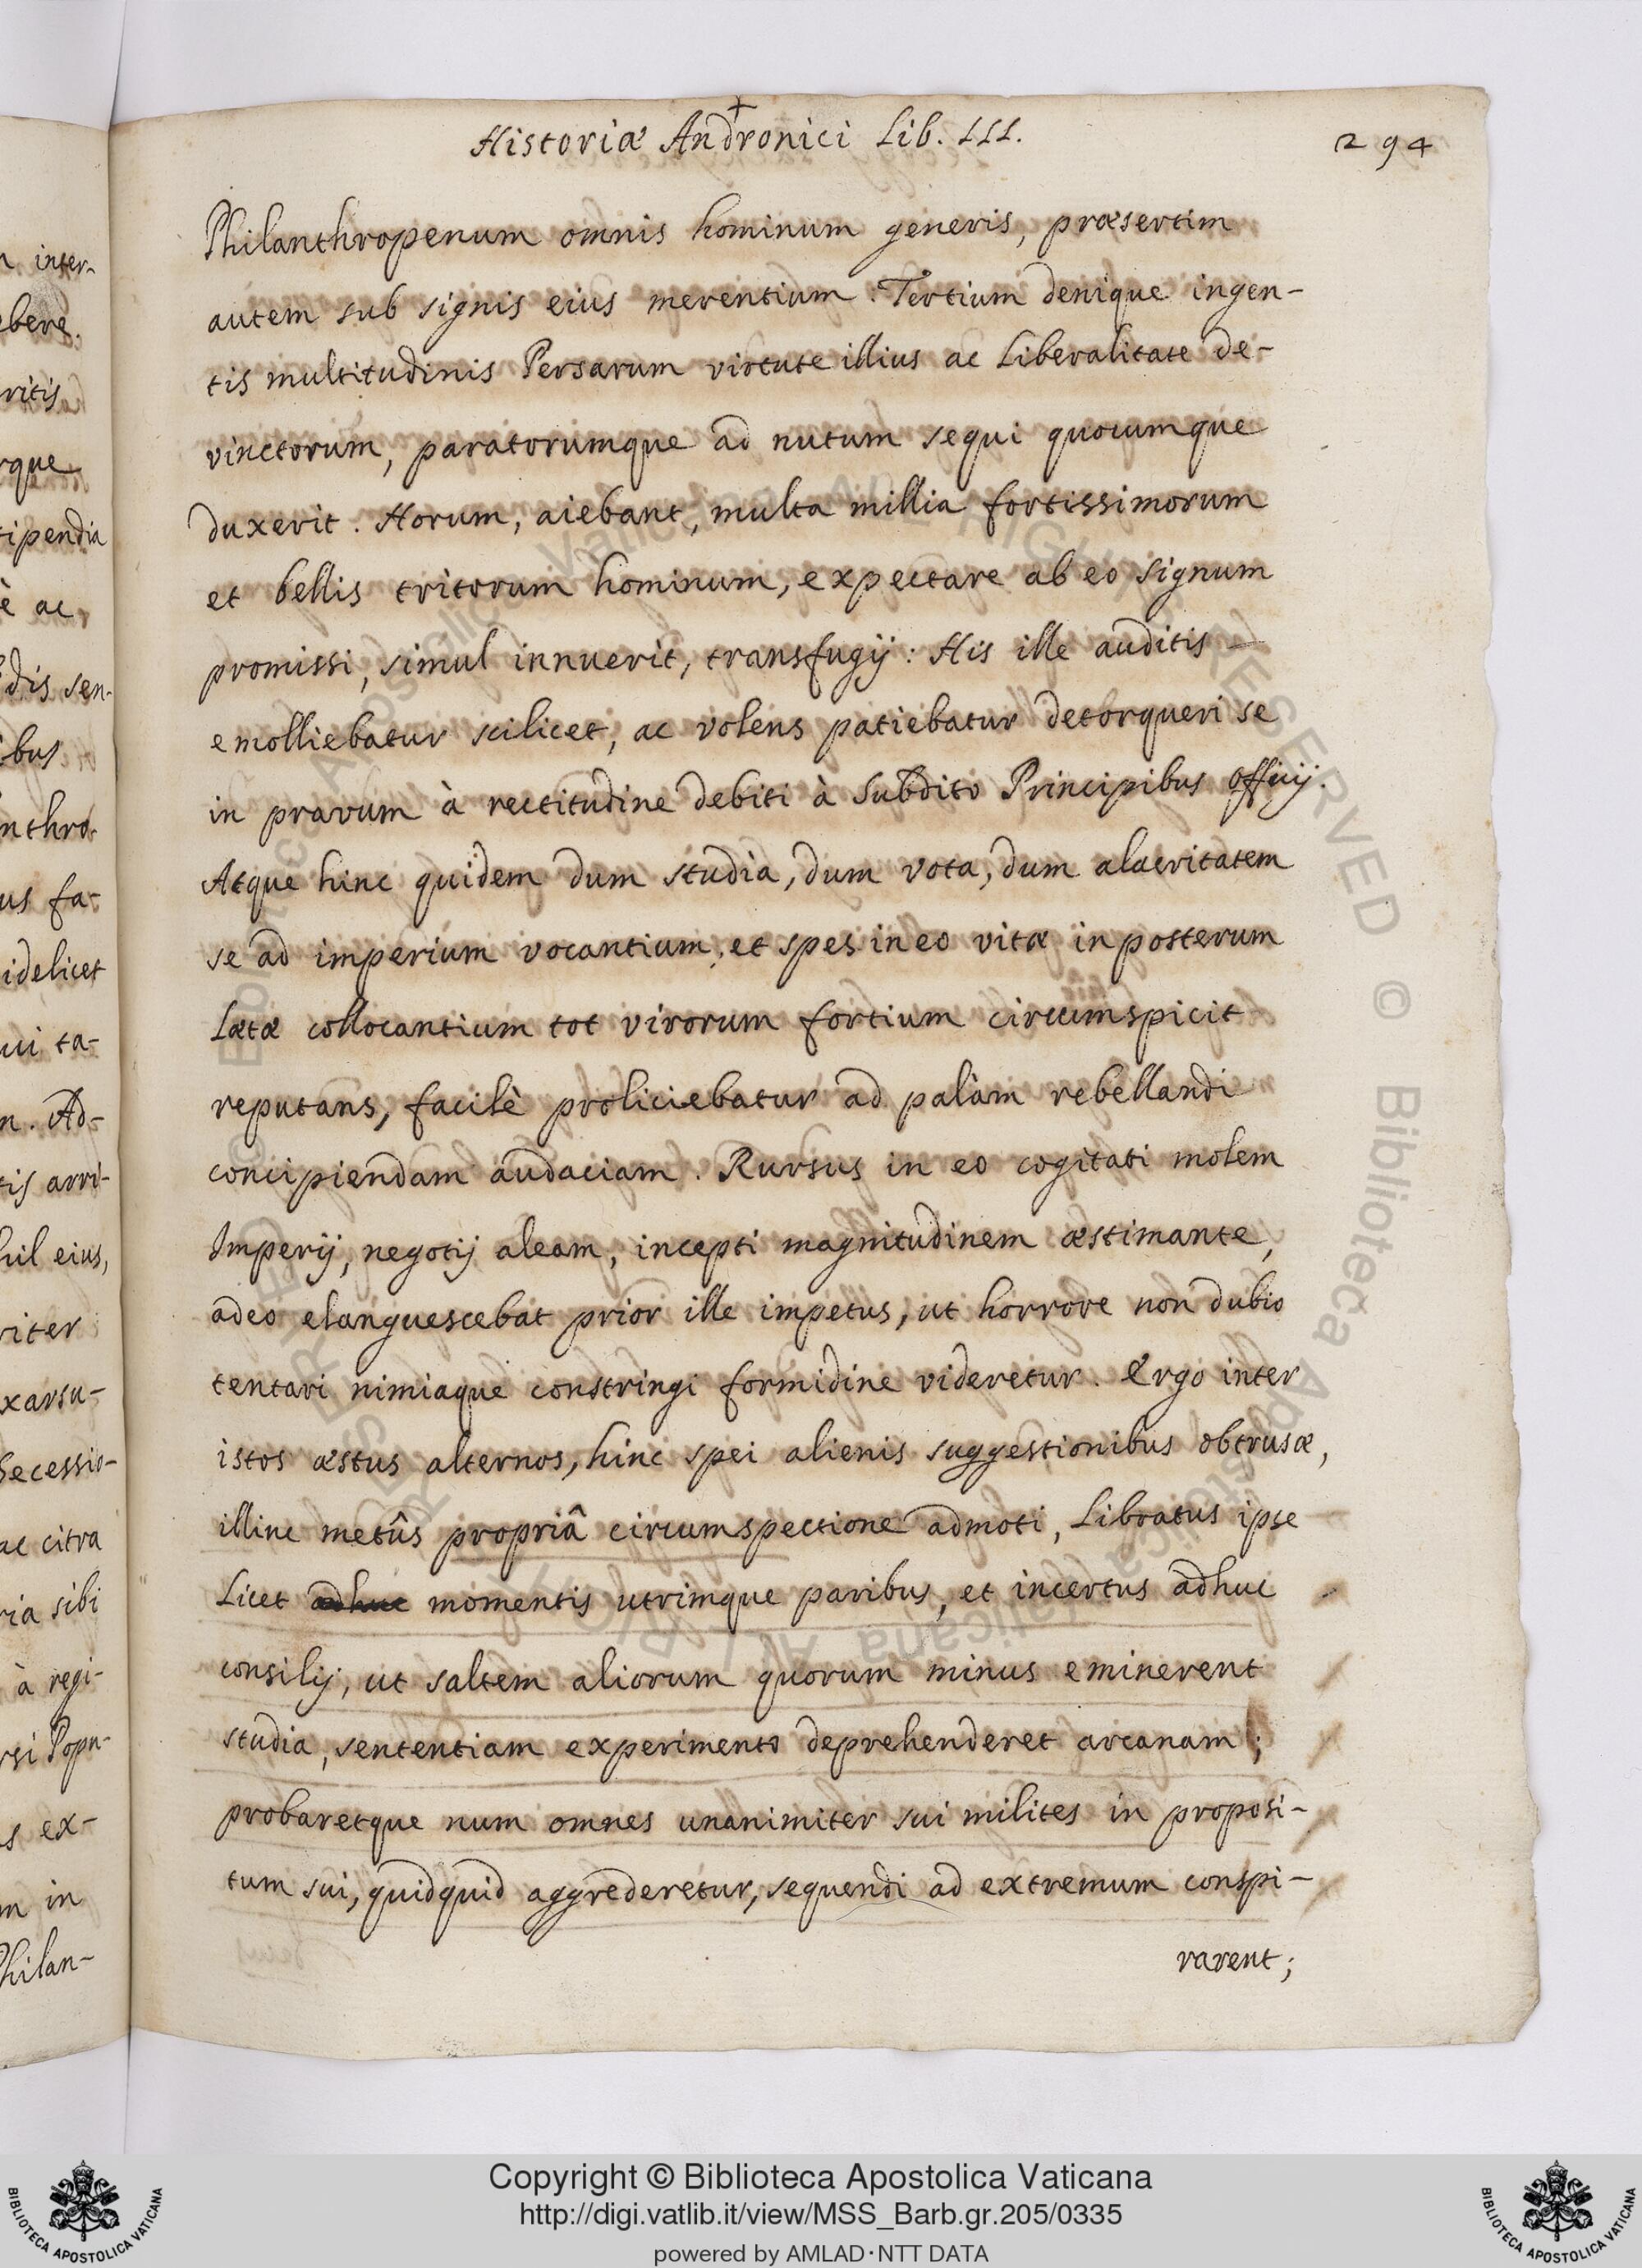 Historiæ Andronici Lib. III.
294
Philanthropenum omnis hominum generis, præsertim
autem sub signis eius merentium. Tertium denique ingen-
tis multitudinis Persarum virtute illius ac Liberalitate de-
vinctorum, paratorumque ad nutum sequi quocumque
duxerit. Horum, aiebant, multa millia fortissimorum
et bellis tritorum hominum, expectare ab eo signum
promissi, simul innuerit, transfugij: His ille auditis
emolliebatur scilicet, ac volens patiebatur detorqueri se
in pravum à rectitudine debiti à Subdito Principibus officij.
Atque hinc quidem dum studia, dum vota, dum alacritatem
se ad imperium vocantium, et spes in eo vitæ in posterum
Lætæ collocantium tot virorum fortium circumspicit
reputans, facilè proliciebatur ad palàm rebellandi
concipiendam audaciam. Rursus in eo cogitati molem
Imperij, negotij aleam, incepti magnitudinem æstimante,
adeo elanguescebat prior ille impetus, ut horrore non dubio
tentari nimiaque constringi formidine videretur. Ergo inter
istos æstus alternos, hinc spei alienis suggestionibus obtrusæ,
illinc metûs propriâ circumspectione admoti, Libratus ipse
Licet adhuc momentis utrimque paribus, et incertus adhuc
consilij, ut saltem aliorum quorum minus eminerent
studia, sententiam experimento deprehenderet arcanam;
probaretque num omnes unanimiter sui milites in proposi-
tum sui, quidquid aggrederetur, sequendi ad extremum conspi-
rarent;
n inter-
ebere.
ritis
rque
tipendia
è ac
dis sen-
ibus
nthro-
us fa-
idelicet
ui ta-
n. Ad-
tis arri-
hil eius,
riter
xarsu-
Secessio-
ac citra
ria sibi
à regi-
rsi Popu-
s ex-
m in
Philan-
© Biblioteca Apostolica Vaticana ALL RIGHTS RESERVED © Biblioteca Apostolica Vaticana ALL RIGHTS RESERVED
Copyright © Biblioteca Apostolica Vaticana
http://digi.vatlib.it/view/MSS_Barb.gr.205/0335
powered by AMLAD·NTT DATA
BIBLIOTECA APOSTOLICA VATICANA
BIBLIOTECA APOSTOLICA VATICANA